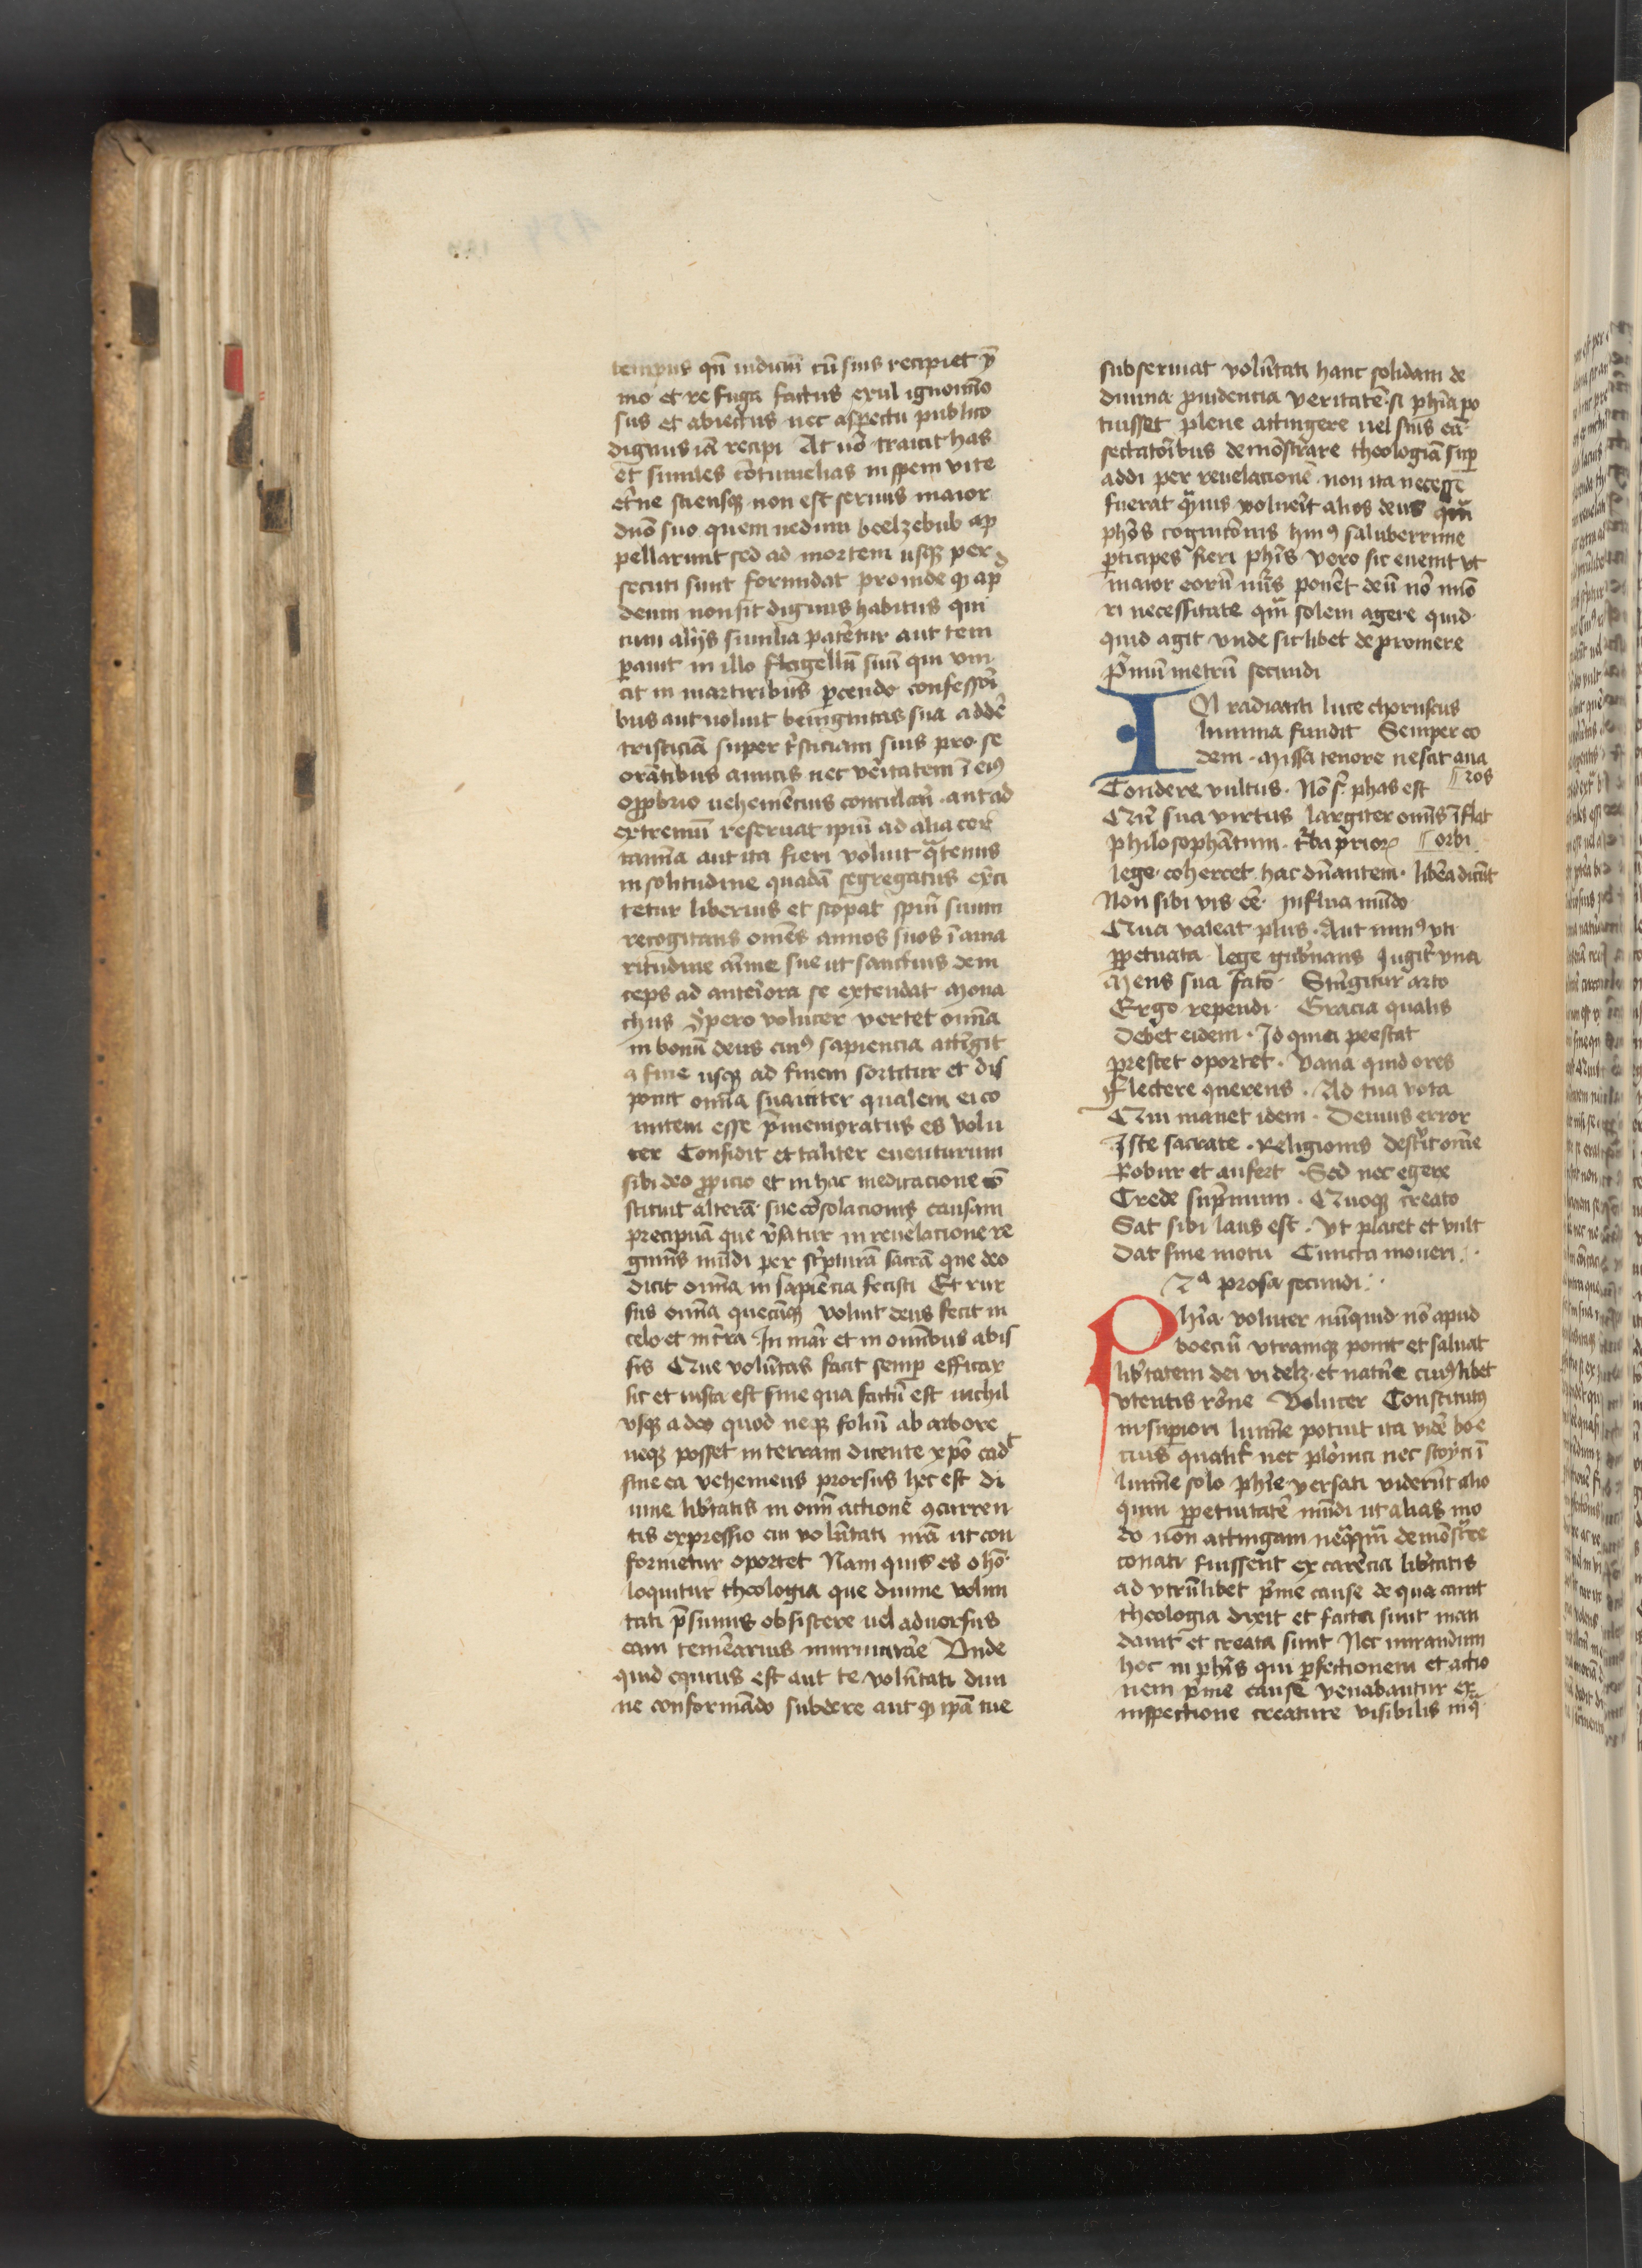 tempus qn̄ iudiciū cū suis recipiet ȳ
mo et refuga factus exul ignomīo
sus et abiectus nec aspectu publico
dignus iā recipi At vo᷒ traicit has
et similes cōtumelias in spem vite
et̄ne sciensqȝ non est seruus maior
dnō suo quem nedum beelzebub ap
pellarunt sed ad mortem usqȝ per
secuti sunt formidat proinde qꝫ ap
deum non sit dignus habitus qui
cum alijs similia patēetur aut tem
ꝑauit in illo flagellū suū qui vin
cit in martiribus ꝑcendo confessori
bus aut voluit benignitas sua addē
tristiciā super tr̄sticiam suis pro se
orātibus amicis nec veritatem ī eiꝰ
oꝓbrio vehemēcius conculcari aut ad
extremū reseruat ipm̄ ad alia cer
tamīa aut ita fieri voluit qͣtenus
in solitudine quadā segregatus exer̄ci
tetur liberius et scopat spm̄ suum
recogitans omēs annos suos ī ama
ritudine aīme sue ut sanctius dein
ceps ad anteriora se extendat Mona
chus Spero volucer vertet omīa
in bonū deus cuiꝰ sapiencia attīgit
a fine usqȝ ad finem fortitur et dis
ponit omīa suauiter qualem ei co
mitem esse p̄memoratus es volu
cer Confidit et taliter euenturum
sibi deo ꝓpicio et in hac meditacione cō
stituit alterā sue cōsolacionis causam
precipuā que v̄satur in reuelacione re
giminis mūdi per sc̄pturā sacrā que deo
dicit omīa in sapiēcia fecisti Et rur
sus omīa quecūqȝ voluit deus fecit in
celo et in t̄ra In mari et in omībus abis
sis Que volūtas facit semꝑ efficax
sic et iusta est sine qua factū est nichil
vsqȝ adeo quod neqȝ foliū ab arbore
neqȝ posset in terram dicente xp̄o cadͭ
sine ea vehemens prorsus hec est di
uine lib̄tatis in omī actione ꝯcurren
tis expressio cui volūtati nr̄ā ut con
formetur oportet Nam quis es o hō
loquitur theologia que diuine volun
tati p̄sumis obsistere vel aduersus
eam temērarius murmurāe Unde
quid equius est aut te volūtati diui
ne conformādo subdere aut qꝫ ip̄ā tue
subseruiat volūtati hanc solidam de
diuina ꝓuidencia veritatē si ph̄ia po
tuisset plene attingere vel suis eā
sectatoribus demōstrare theologiā suꝑ
addi per reuelacionē non ita necesse
fuerat qͣuis voluerit alios deus qͣm
ph̄os cognitōnis huiꝰ saluberrime
ꝑticipes fieri ph̄is vero sic euenit vt
maior eorū nūs ponet deū nō mīo
ri necessitate qͣm solem agere quid
quid agit vnde sic libet depromere
P̄mū metrū secundi
IN radianti luce choruscus
lumina fundit Semper eo
dem missa tenore nescit aua
ros
Condere vultus Nō s᷒ phas est
Cur̄ sua virtus largiter omīs īflat
philosophātum t̄ba prioꝝ
orbi
lege cohercet hac dn̄antem libēa dicūt
Non sibi vis eē influa mūdo
Qua valeat plus Aut minꝰ vti
ꝑpetuata lege gub̄nans Jugit̄ vna
Mens sua fato Stringitur arto
Ergo rependi Gracia qualis
Debet eidem Id quia prestat
prestet oportet Vana quid ores
Flectere querens Ad tua vota
Qui manet idem Demus error
Iste sacrate Religionis destruit om̄e
Robur et aufert Sed nec egere
Crede sup̄mum Quoqȝ creato
Sat sibi laus est Vt placet et vult
Dat sine motu Cuncta moueri
2ᵃ prosa secundi
Ph̄ia volucer nūnquid nō apud
boeciū vtramqȝ ponit et saluat
lib̄tatem dei videlꝫ et natūe cuiꝰlibet
vtentis rōne Volucer Constitutꝰ
in suꝑiori lumīe potuit ita vidē boe
cius qualit̄ nec plōnici nec stoyci ī
lumīe solo ph̄ie versati viderūt alio
quin ꝑpetuitatē mūdi ut alias mo
do non attingam neqͣqͣm demōstͣre
conati fuissent ex carēcia lib̄tatis
ad vtrūlibet p̄me cause de qua canit
theologia dixit et facta sunt man
dauit et creata sunt Nec mirandum
hoc in ph̄is qui ꝑfectionem et actio
nem p̄me cause venabantur ex
inspectione creature visibilis inqͣ